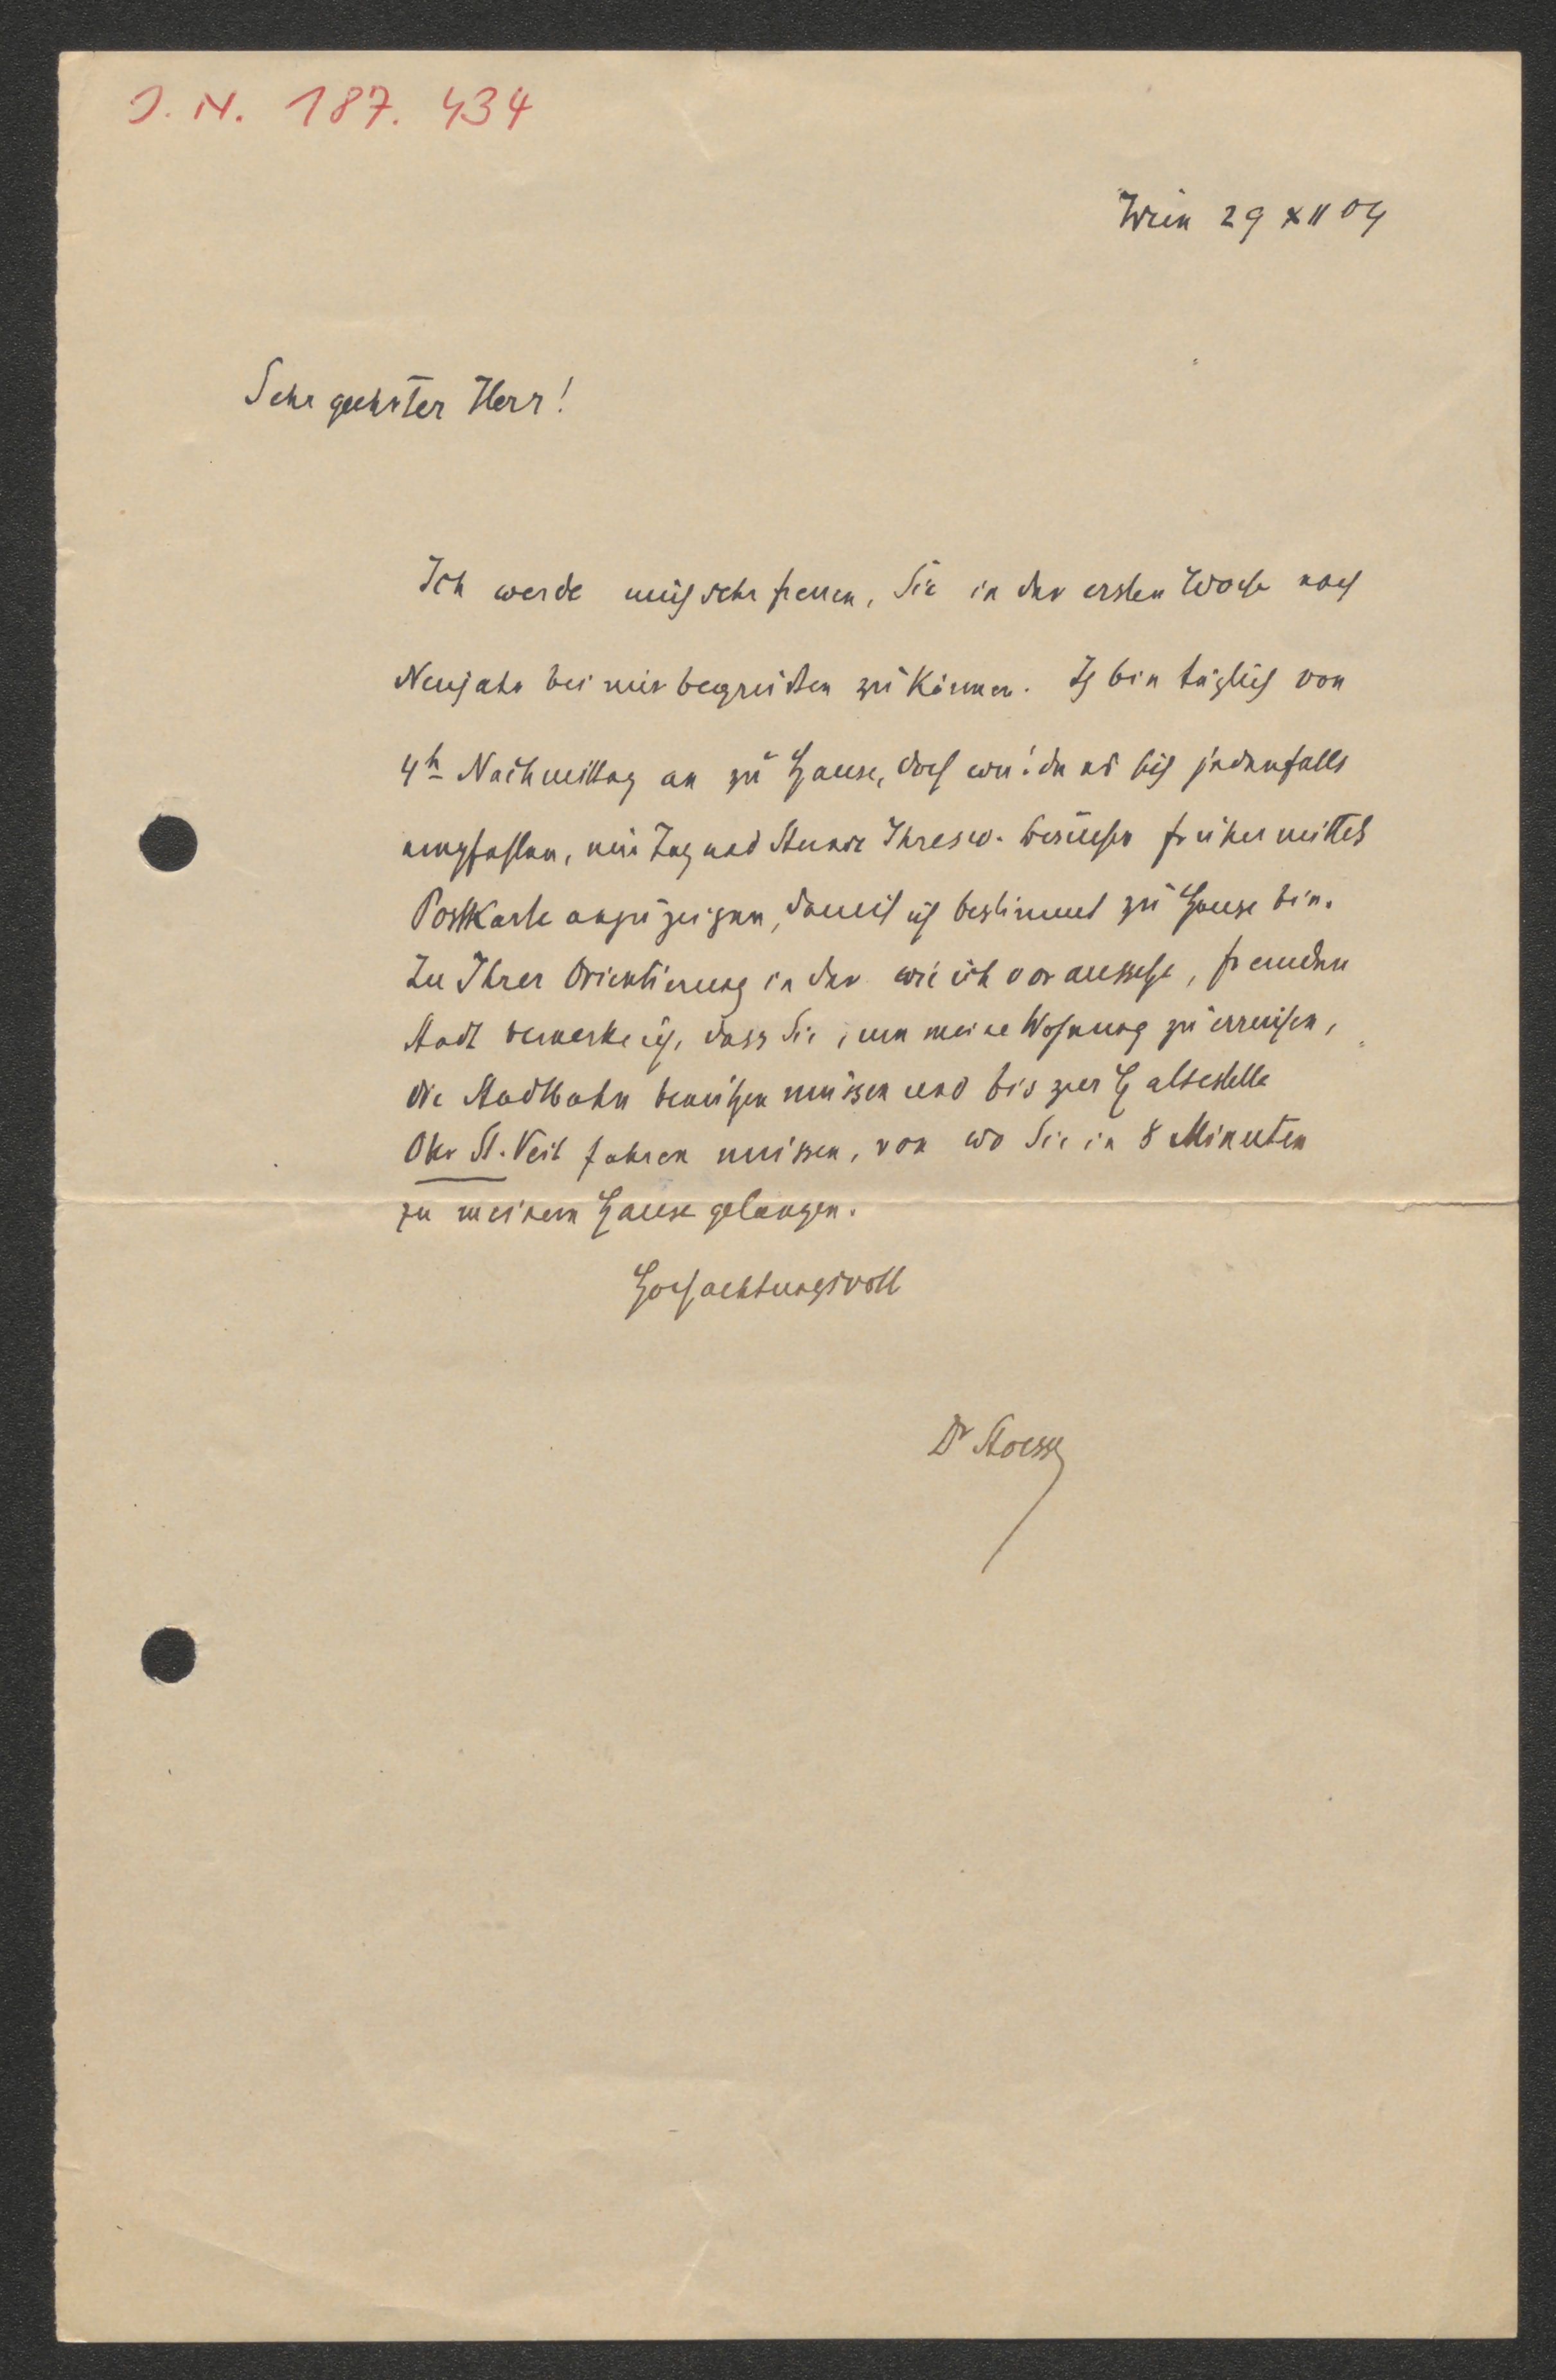 J. N. 187. 434
Wien 29 XII 04
Sehr geehrter Herr!
Ich werde mich sehr freuen, Sie in der ersten Woche nach
Neujahr bei mir begrüßen zu können. Ich bin täglich von
4h Nachmittag an zu Hause, doch würde es sich jedenfalls
empfehlen, mir Tag und Stunde Ihres w. Besuches früher mittels
Postkarte anzuzeigen, damit ich bestimmt zu Hause bin.
Zu Ihrer Orientierung in der wie ich voraussehe, fremden
Stadt bemerke ich, dass Sie, um meine Wohnung zu erreichen,
die Stadtbahn benützen müssen und bis zur Haltestelle
Ober St. Veit fahren müssen, von wo Sie in 8 Minuten
zu meinem Hause gelangen.
Hochachtungsvoll
Dr Stoessl